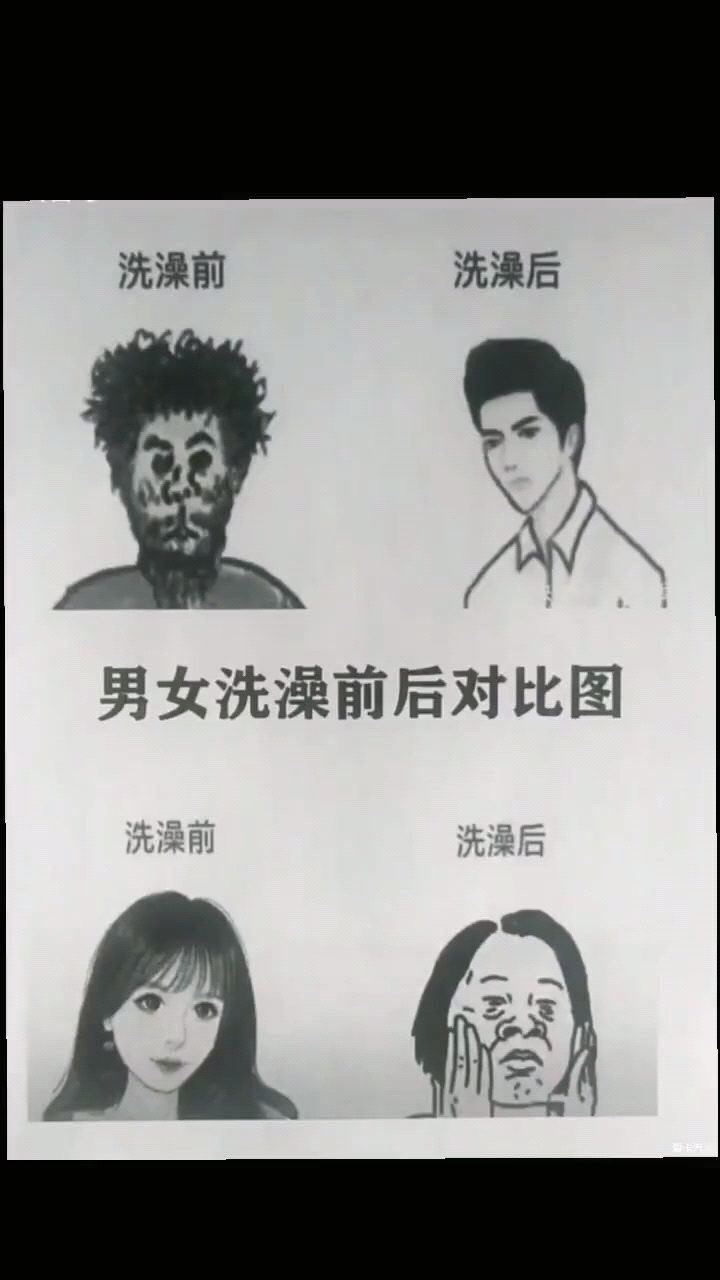 洗澡前
洗澡后
男女洗澡前后对比图
洗澡前
洗澡后